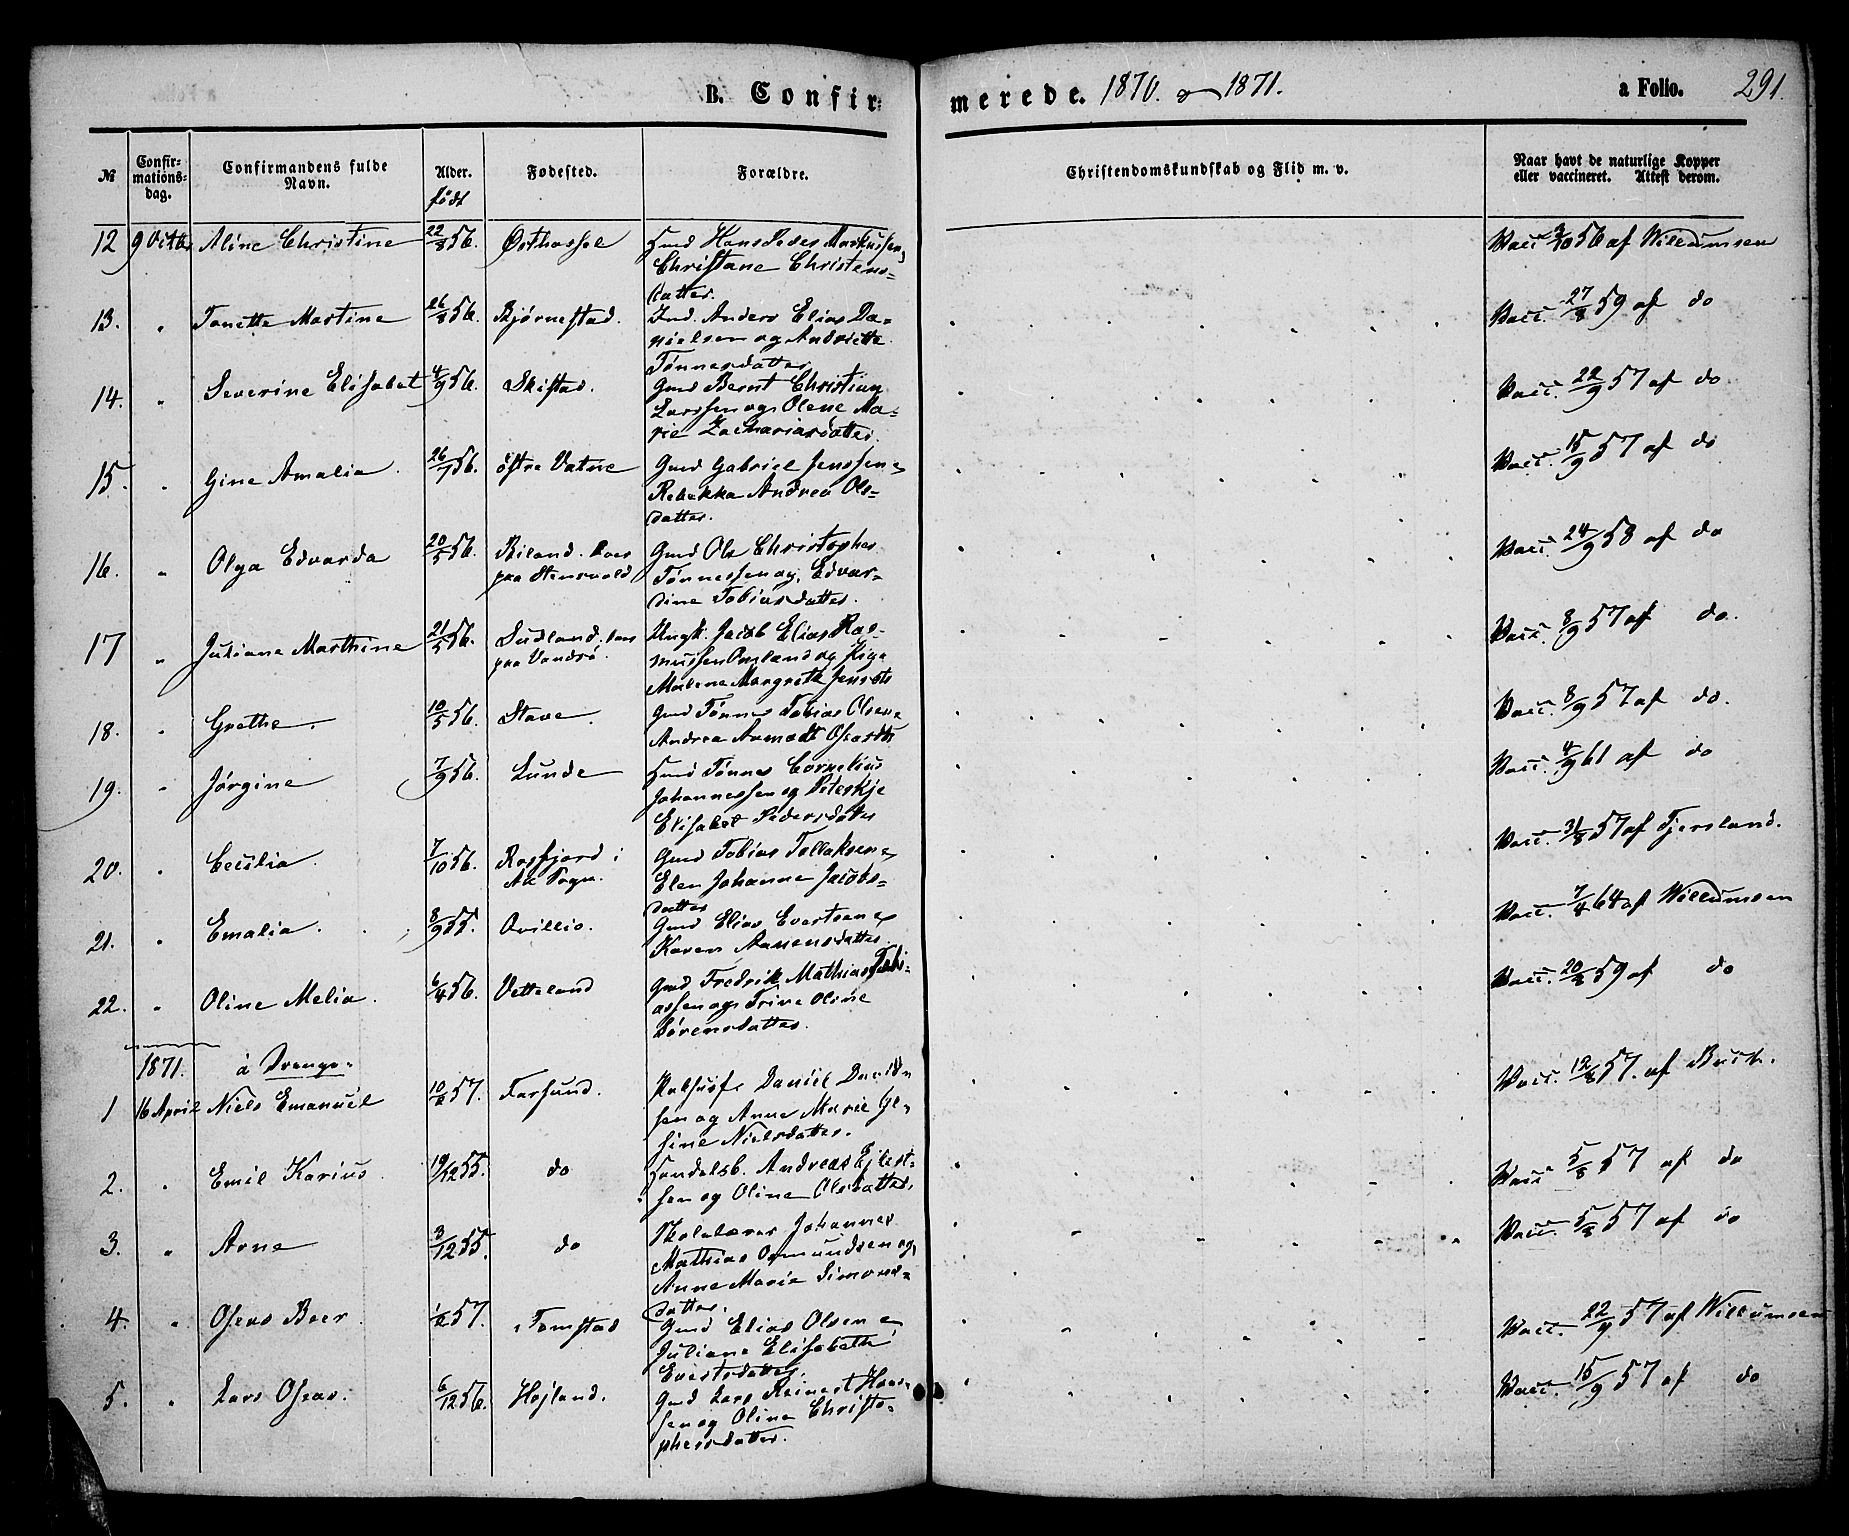 B. Confirmerede. 1870. og 1871. a Folio. 291.
№ Confirmationsdag. Confirmandens fulde Navn. Alder. født Fødested. Forældre. Christendomskundskab og Flid m. v. Naar havt de naturlige Kopper eller vaccineret. Attest derom.
12 9 Octbr Aline Christine 22/8 56. Østhassel Gmd Hans Peder Markussen,
Christiane Christens-
datter.
Vacc 3/10 56 af Willumsen
13. " Tonette Martine 26/8 56. Bjørnestad. Ind. Anders Elias Da-
nielsen og Andriette
Tønnesdatter
Vacc. 27/8 59 af do
14. " Severine Elisabet 4/9 56. Skistad. Gmd Bernt Christian
Larssen og Olene Ma-
rie Zachariasdatter.
Vacc. 22/9 57 af do
15. " Gine Amalia. 26/7 56. østre Vatne Gmd Gabriel Jenssen,
Rebekka Andrea Ols-
datter.
Vacc. 15/9 57 af do
16. " Olga Edvarda 20/5 56. Biland. boer
paa Stensvold
Gmd Ole Christopher
Tønnessen og, Edvar-
dine Tobiasdatter.
Vacc. 24/9 58 af do
17 " Juliane Marthine 21/5 56. Sudland. boer
paa Vandsø.
Ungk. Jacob Elias Ras-
mussen Omland og Pige
Malene Margrete Jensdt
Vacc. 8/9 57 af do.
18. " Grethe. 10/5 56. Stave. Gmd Tønnes Tobias Olsen,
Andrea
Vacc. 8/9 57 af do.
19. " Jørgine 7/9 56. Lunde Hmd Tønnes Cornelius
Johannessen og
Elisabet Pedersdatter
Vacc. 4/9 61 af do
20. " Cecilia. 7/10 56. Rosfjord i
Aa Sogn.
Gmd Tobias Tollaksen,
Elen Johanne Jacobs-
datter
Vacc. 31/8 57 af Fjersland.
21. " Emalia. 8/9 55. Qvillio. Gmd Elias Evertsen,
Karen Aanensdatter
Vacc. 7/4 64 af Willumsen
22. " Oline Melia. 6/4 56. Vetteland Gmd Fredrik Mathias Tobi-
assen og Trine Oline
Sørensdatter.
Vacc. 20/8 59 af do
1871. á Drenge.
1 16 April Niels Emanuel 10/2 57. Farsund. Daniel
sen og Anne Marie Ge-
sine Nielsdatter.
Vacc. 12/8 57. af Buch.
2. " Emil Karius 19/12 55. do Handelsb. Andreas
sen og Oline Olsdatter.
Vacc 5/8 57 af do
3. " Arne 3/12 55. do Skolelærer Johannes
Mathias Osmundsen og,
Anne Marie Simons-
datter.
Vacc. 5/8 57 af do
4. " Oseas Beer 1/2 57. Tomstad Gmd Elias Olsen,
Juliane Elisabeth
Evertsdatter.
Vacc. 22/9 57 af Willumsen
5. " Lars Oseas. 6/12 56. Højland. Gmd Lars Reinert Han-
sen og Oline Christo-
phersdatter.
Vacc. 15/9 57 af do